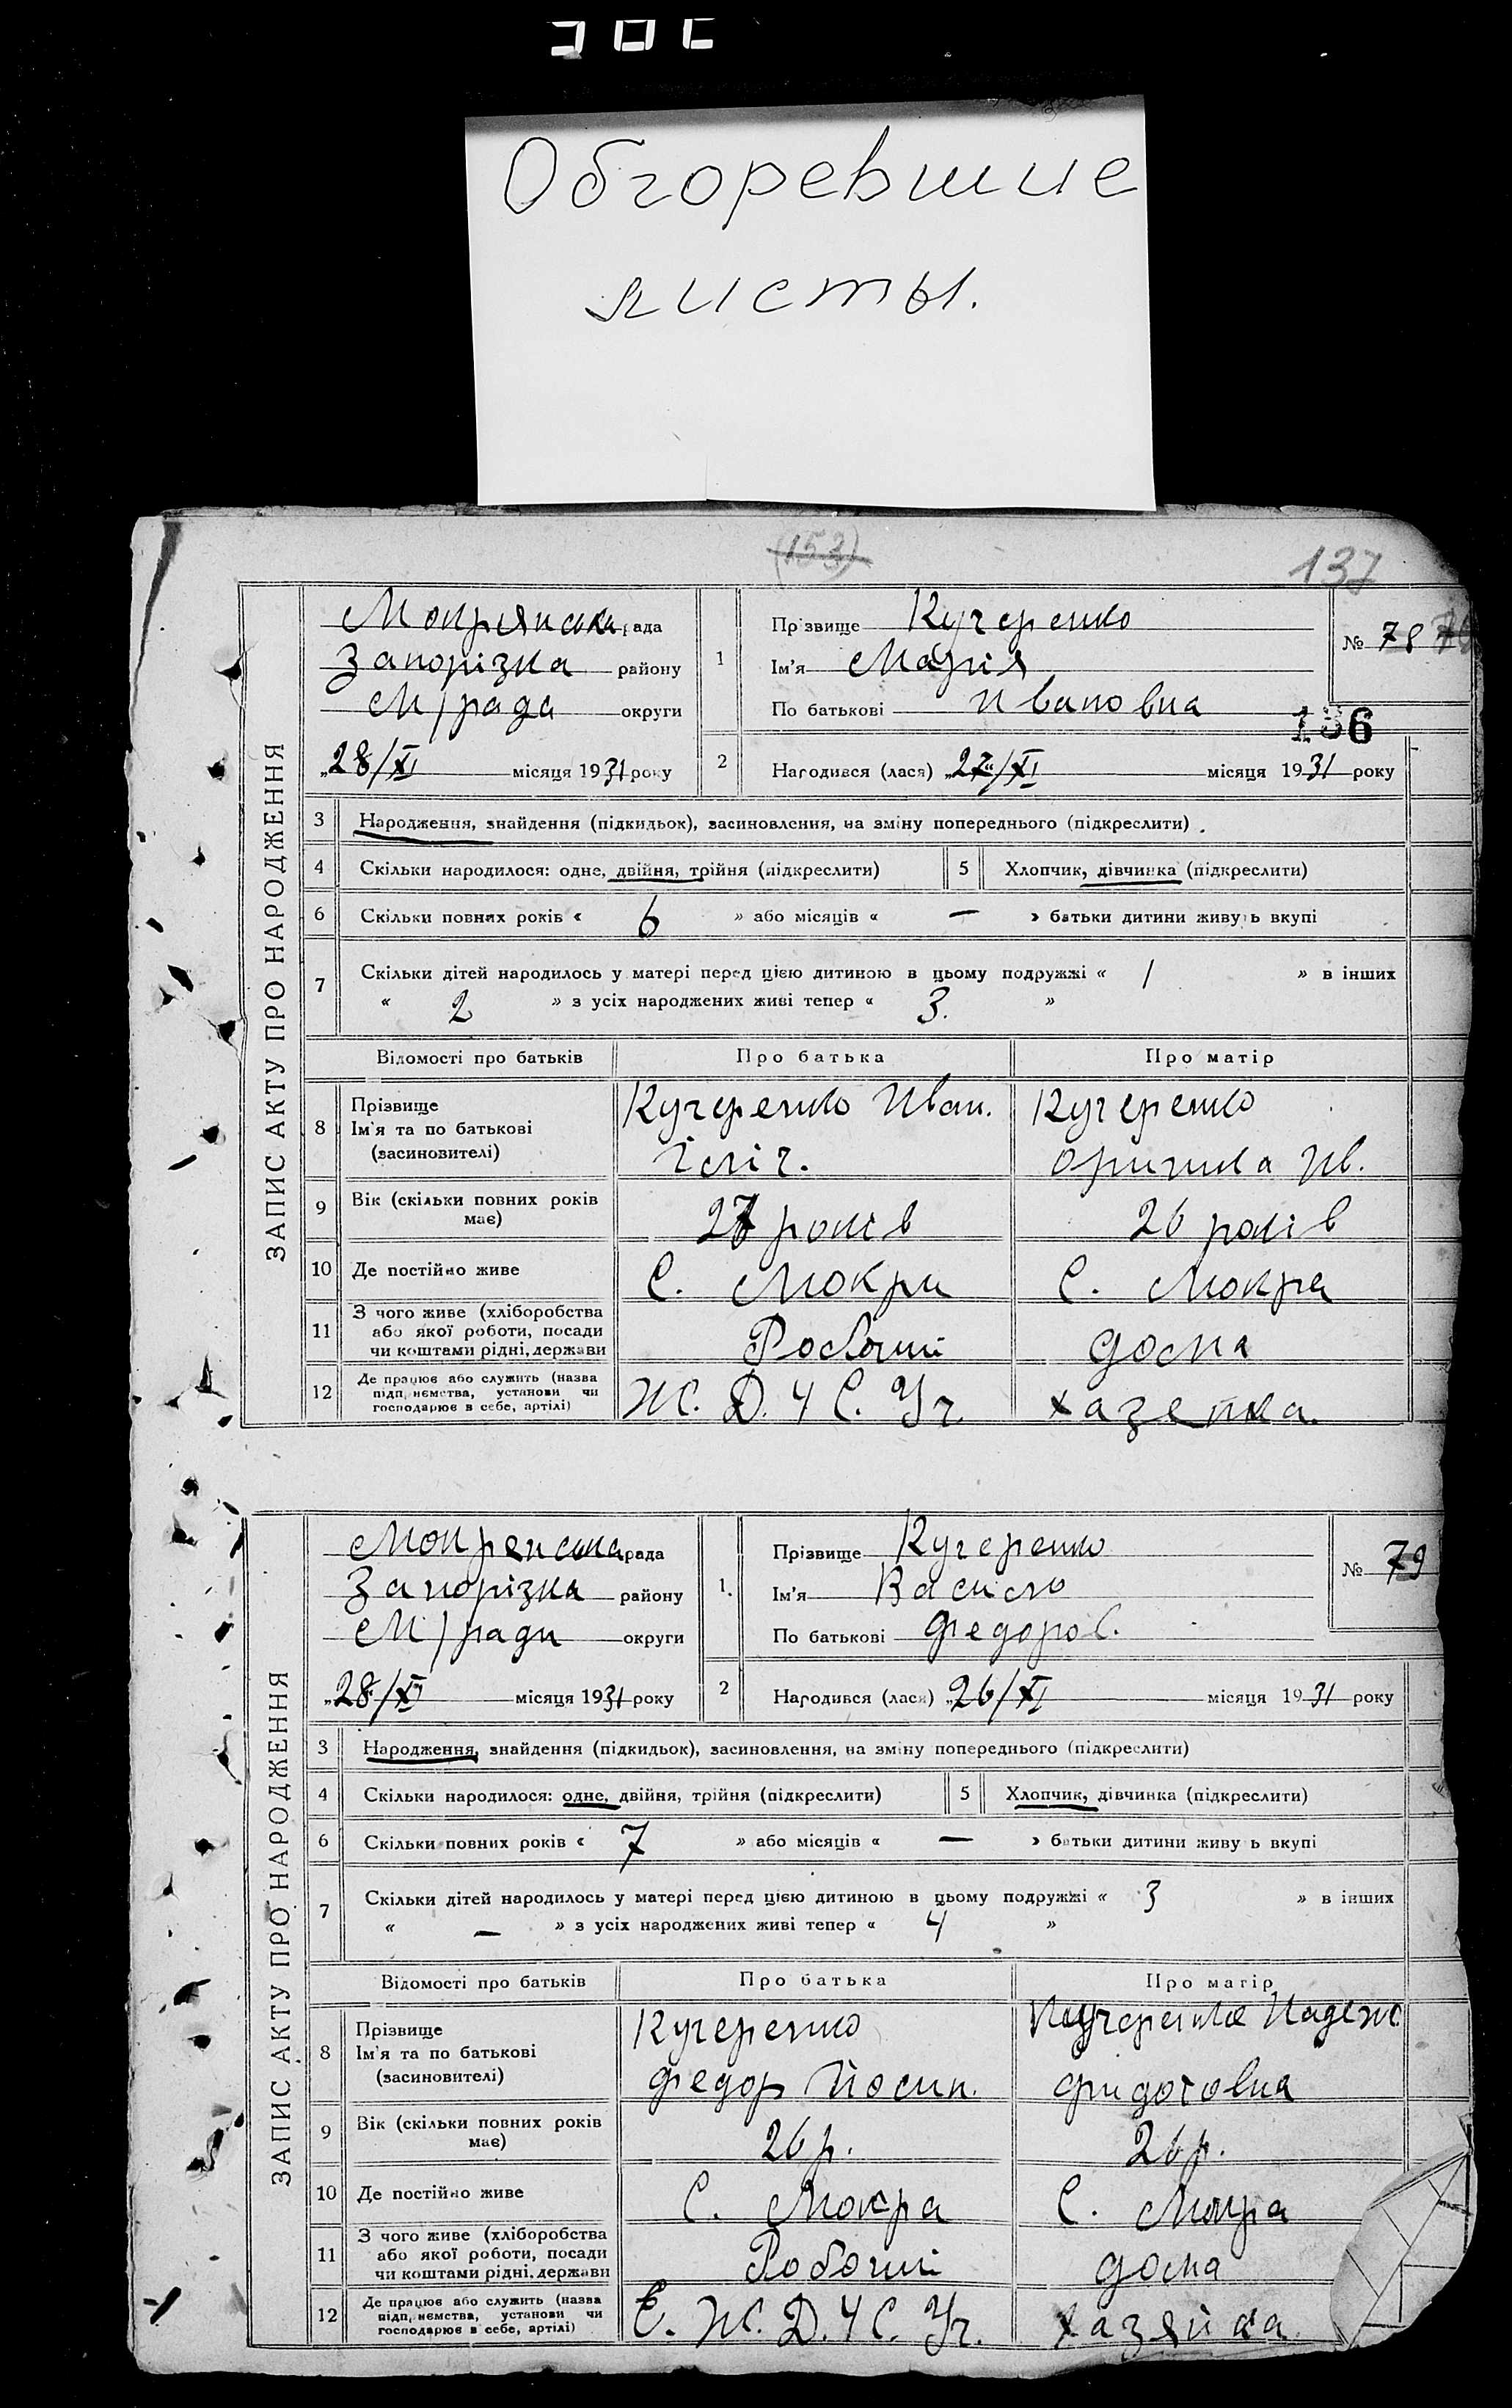 Обгоревшие
листы.
(153)
137
ЗАПИС АКТУ ПРО НАРОДЖЕННЯ
Мокрянська рада
Запорізка району
М/рада округи
„28/XI місяця 1931 року
1
Прізвище Кучеренко
Ім'я Марія
По батькові Ивановна
№ 78
136
2
Народився (лася) „27/XI місяця 1931 року
3 Народження, знайдення (підкидьок), засиновлення, на зміну попереднього (підкреслити)
4 Скільки народилося: одне, двійня, трійня (підкреслити) 5 Хлопчик, дівчинка (підкреслити)
6 Скільки повних років « 6 » або місяців « — » батьки дитини живуть вкупі
7 Скільки дітей народилось у матері перед цією дитиною в цьому подружжі « 1 » в інших
« 2 » з усіх народжених живі тепер « 3. »
Відомості про батьків Про батька Про матір
8 Прізвище
Ім'я та по батькові
(засиновителі)
Кучеренко Иван.
Кучеренко
Ив.
9 Вік (скільки повних років
має)
27 років 26 років
10 Де постійно живе С. Мокри С. Мокра
11 З чого живе (хліборобства
або якої роботи, посади
чи коштами рідні, держави
Робочий дома
12 Де працює або служить (назва
підприємства, установи чи
господарює в себе, артілі)
Ж. Д. 4 С. Уч. хазепка.
ЗАПИС АКТУ ПРО НАРОДЖЕННЯ
Мокренська рада
Запорізка району
М/ради округи
„28/XI місяця 1931 року
1.
Прізвище Кучеренко
Ім'я Василю
По батькові Федоров.
№ 79
2
Народився (лася) „26/XI місяця 1931 року
3 Народження, знайдення (підкидьок), засиновлення, на зміну попереднього (підкреслити)
4 Скільки народилося: одне, двійня, трійня (підкреслити) 5 Хлопчик, дівчинка (підкреслити)
6 Скільки повних років « 7 » або місяців « — » батьки дитини живуть вкупі
7 Скільки дітей народилось у матері перед цією дитиною в цьому подружжі « 3 » в інших
« — » з усіх народжених живі тепер « 4 »
Відомості про батьків Про батька Про матір
8 Прізвище
Ім'я та по батькові
(засиновителі)
Кучеренко
Федор Йосип.
Кучеренко Надеж
Фидотовна
9 Вік (скільки повних років
має)
26 р. 26 р.
10 Де постійно живе С. Мокра С. Мокра
11 З чого живе (хліборобства
або якої роботи, посади
чи коштами рідні, держави
Робочий дома
12 Де працює або служить (назва
підприємства, установи чи
господарює в себе, артілі)
Є. Ж. Д. 4 С. Уч. хазяйка